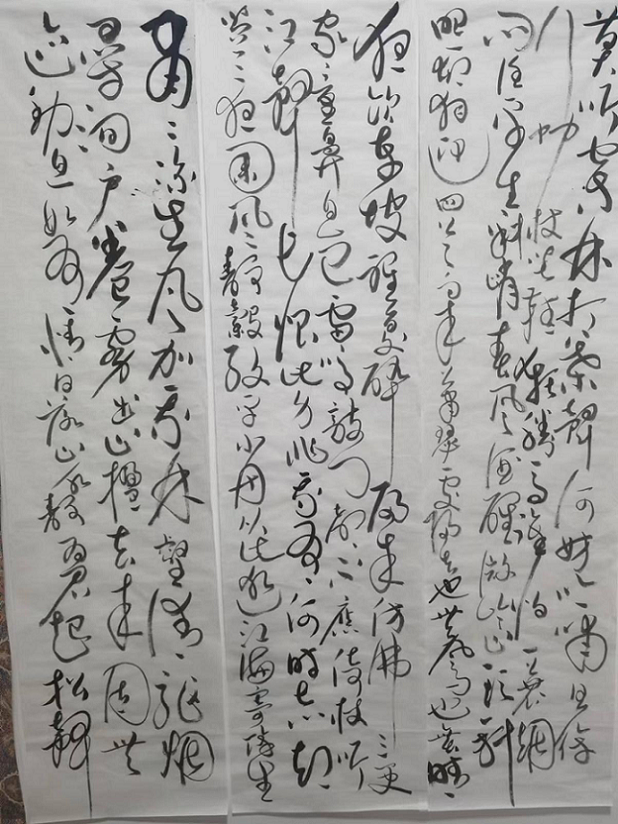 莫听穿林打叶声何妨吟啸且徐
行竹杖芒鞋轻胜马谁怕一蓑烟
雨任平生料峭春风吹酒醒微冷山头斜
照却相迎回首向来萧瑟处归去也无风雨也无晴
夜饮东坡醒复醉归来仿佛三更
家童鼻息已雷鸣敲门都不应倚杖听
江声长恨此身非我有何时忘却
营营夜阑风静縠纹平小舟从此逝江海寄余生
肃肃凉生风加我林壑清驱烟
寻涧户卷雾出山楹去来固无
迹动息如有情日落山水静为君起松声